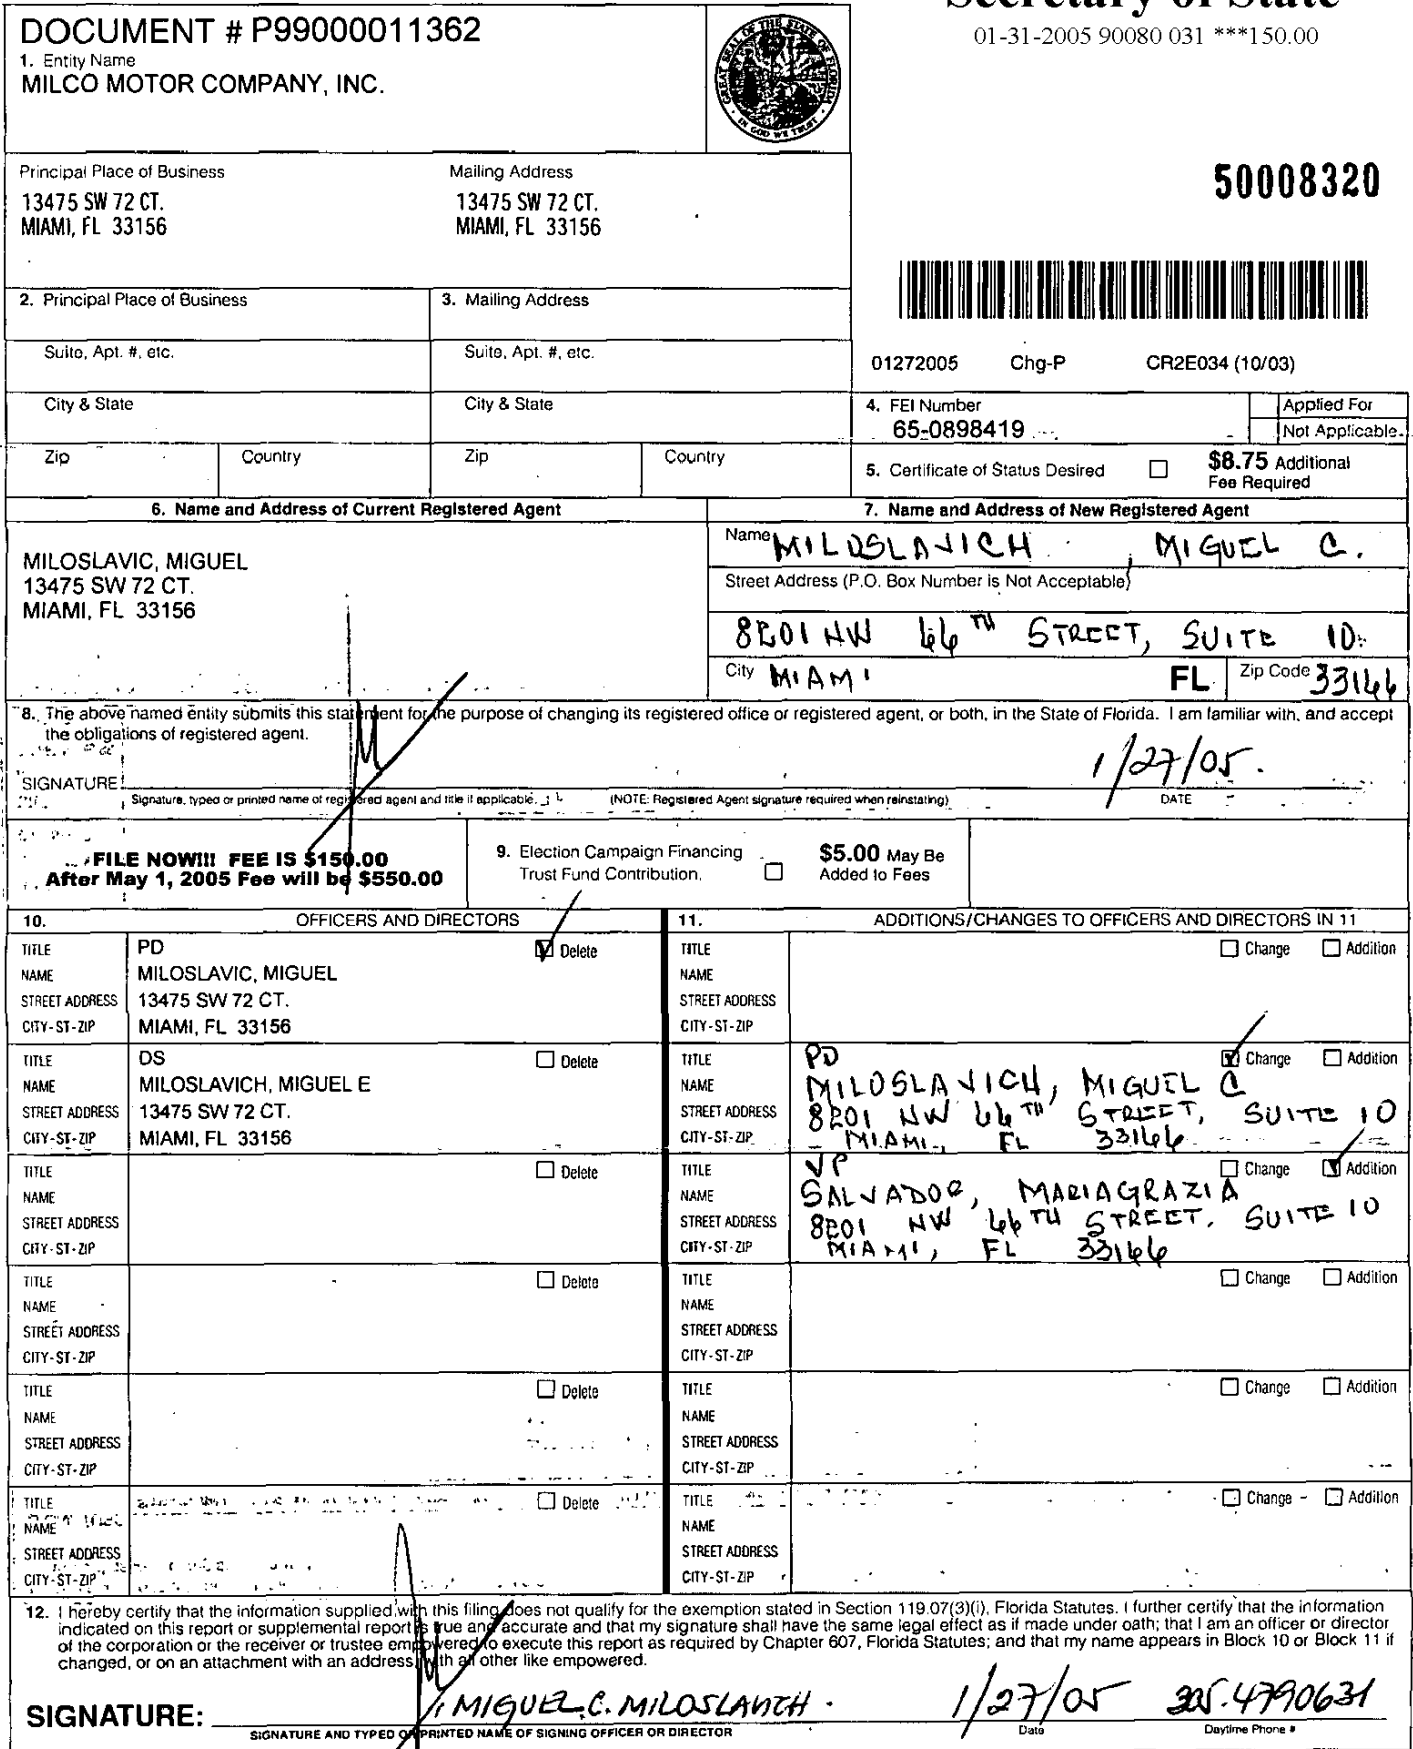 Secretary of State
01-31-2005 90080 031 ***150.00
DOCUMENT # P99000011362
1. Entity Name
MILCO MOTOR COMPANY, INC.
GREAT SEAL OF THE STATE OF FLORIDA
IN GOD WE TRUST
Principal Place of Business
13475 SW 72 CT.
MIAMI, FL 33156
Mailing Address
13475 SW 72 CT.
MIAMI, FL 33156
50008320
2. Principal Place of Business
3. Mailing Address
Suite, Apt. #, etc.
Suite, Apt. #, etc.
01272005 Chg-P CR2E034 (10/03)
City & State
City & State
4. FEI Number
65-0898419
Applied For
Not Applicable
Zip Country
Zip Country
5. Certificate of Status Desired
$8.75 Additional
Fee Required
6. Name and Address of Current Registered Agent
7. Name and Address of New Registered Agent
MILOSLAVIC, MIGUEL
13475 SW 72 CT.
MIAMI, FL 33156
Name MILOSLAVICH, MIGUEL C.
Street Address (P.O. Box Number is Not Acceptable)
8201 NW 66TH STREET, SUITE 10
City MIAMI FL Zip Code 33166
8. The above named entity submits this statement for the purpose of changing its registered office or registered agent, or both, in the State of Florida. I am familiar with, and accept
the obligations of registered agent.
SIGNATURE
1/27/05.
Signature, typed or printed name of registered agent and title if applicable. (NOTE: Registered Agent signature required when reinstating) DATE
FILE NOW!!! FEE IS $150.00
After May 1, 2005 Fee will be $550.00
9. Election Campaign Financing
Trust Fund Contribution.
$5.00 May Be
Added to Fees
10. OFFICERS AND DIRECTORS
11. ADDITIONS/CHANGES TO OFFICERS AND DIRECTORS IN 11
TITLE PD Delete
NAME MILOSLAVIC, MIGUEL
STREET ADDRESS 13475 SW 72 CT.
CITY-ST-ZIP MIAMI, FL 33156
TITLE Change Addition
NAME
STREET ADDRESS
CITY-ST-ZIP
TITLE DS Delete
NAME MILOSLAVICH, MIGUEL E
STREET ADDRESS 13475 SW 72 CT.
CITY-ST-ZIP MIAMI, FL 33156
TITLE PD Change Addition
NAME MILOSLAVICH, MIGUEL C
STREET ADDRESS 8201 NW 66TH STREET, SUITE 10
CITY-ST-ZIP MIAMI, FL 33166
TITLE Delete
NAME
STREET ADDRESS
CITY-ST-ZIP
TITLE VP Change Addition
NAME SALVADOR, MARIAGRAZIA
STREET ADDRESS 8201 NW 66TH STREET, SUITE 10
CITY-ST-ZIP MIAMI, FL 33166
TITLE Delete
NAME
STREET ADDRESS
CITY-ST-ZIP
TITLE Change Addition
NAME
STREET ADDRESS
CITY-ST-ZIP
TITLE Delete
NAME
STREET ADDRESS
CITY-ST-ZIP
TITLE Change Addition
NAME
STREET ADDRESS
CITY-ST-ZIP
TITLE Delete
NAME
STREET ADDRESS
CITY-ST-ZIP
TITLE Change Addition
NAME
STREET ADDRESS
CITY-ST-ZIP
12. I hereby certify that the information supplied with this filing does not qualify for the exemption stated in Section 119.07(3)(i), Florida Statutes. I further certify that the information
indicated on this report or supplemental report is true and accurate and that my signature shall have the same legal effect as if made under oath; that I am an officer or director
of the corporation or the receiver or trustee empowered to execute this report as required by Chapter 607, Florida Statutes; and that my name appears in Block 10 or Block 11 if
changed, or on an attachment with an address, with all other like empowered.
SIGNATURE: MIGUEL C. MILOSLAVICH. 1/27/05 305.4790631
SIGNATURE AND TYPED OR PRINTED NAME OF SIGNING OFFICER OR DIRECTOR Date Daytime Phone #